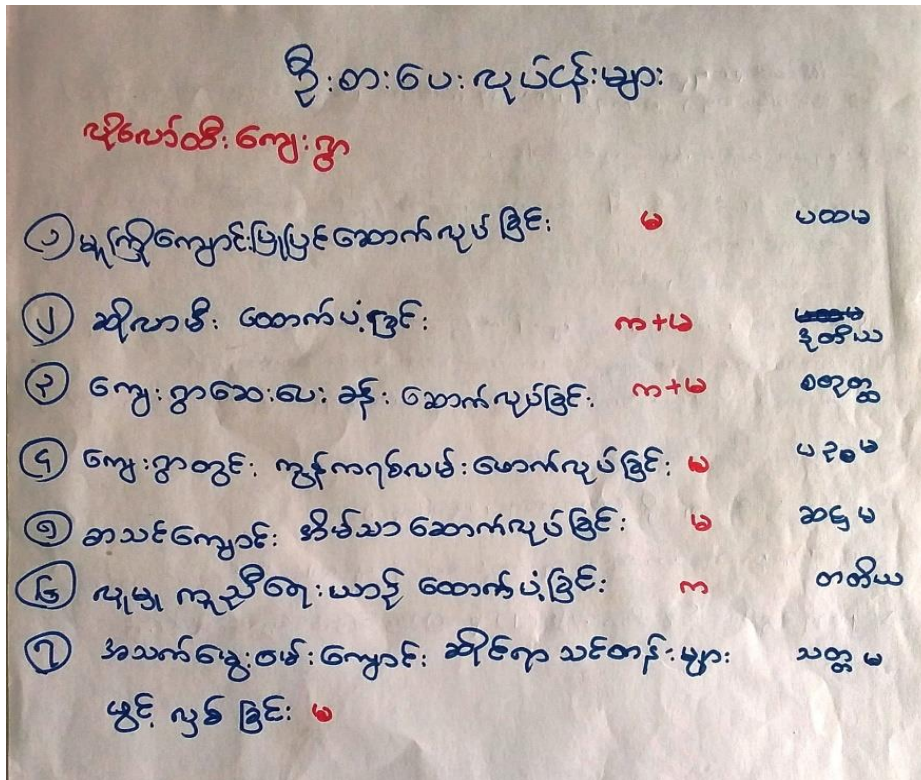 ဦးစားပေးလုပ်ငန်းများ
လိုလော်ထီးကျေးရွာ
၁ မူကြိုကျောင်းပြုပြင်ဆောက်လုပ်ခြင်း မ ပထမ
၂ ဆိုလာမီး ထောက်ပံ့ခြင်း က+မ ဒုတိယ
၃ ကျေးရွာဆေးပေးခန်း ဆောက်လုပ်ခြင်း က+မ စတုတ္ထ
၄ ကျေးရွာတွင်း ကွန်ကရစ်လမ်းဖောက်လုပ်ခြင်း မ ပဉ္စမ
၅ စာသင်ကျောင်း အိမ်သာဆောက်လုပ်ခြင်း မ ဆဋ္ဌမ
၆ လူမှု ကူညီရေးယာဉ် ထောက်ပံ့ခြင်း က တတိယ
၇ အသက်မွေးဝမ်းကျောင်း ဆိုင်ရာ သင်တန်းများ သတ္တမ
ဖွင့် လှစ် ခြင်း မ